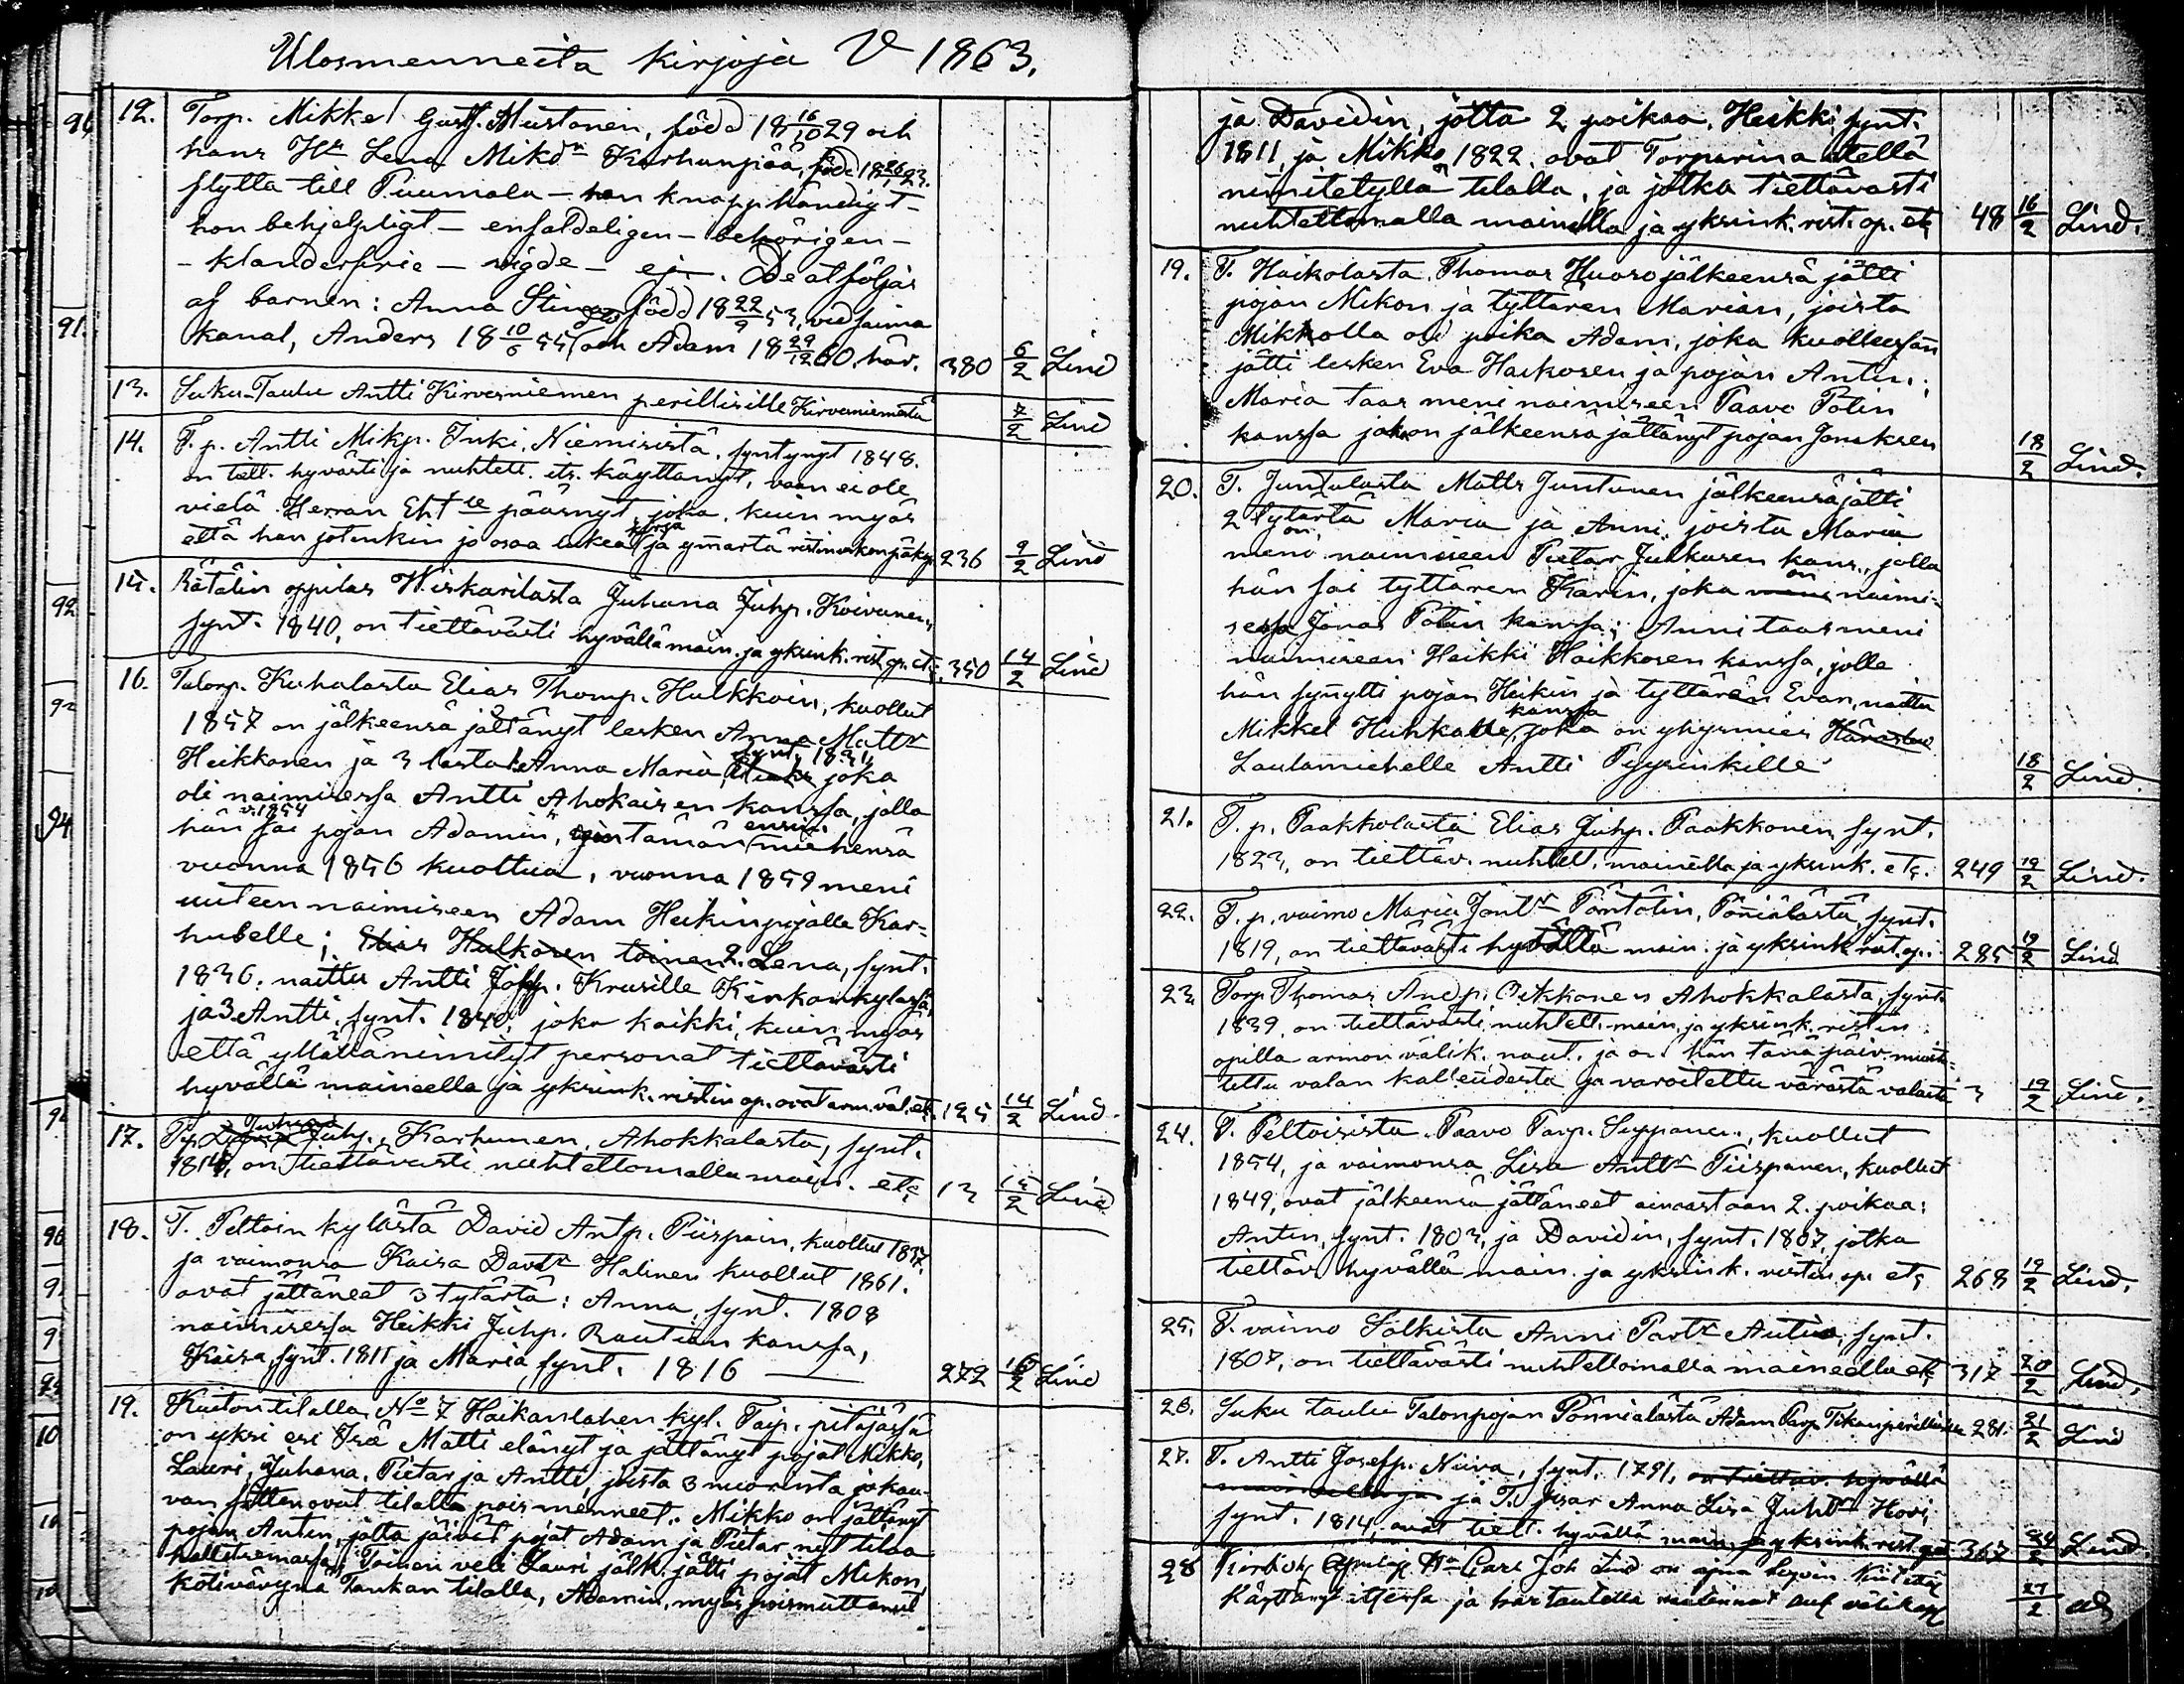 Ulosmenneitä kirjoja V 1863.
12. Torp. Mikkel Gustf. Mustonen, född 18 16/10 29 och
hans Hu Lena Mikdr Karhunpää, född 18 26/1 23.
flytta till Puumala – han knapphändigt –
hon behjelpligt – enfaldeligen – behörigen –
– klanderfrie – vigde – ej –. De åtföljas
af barnen: Anna Stina född 18 22/9 53, vid Saima
kanal, Anders 18 10/6 55 och Adam 18 29/12 60. här. 380 6/2 Lind
13. Suku-Taulu Antti Kirvesniemen perillisille Kirvesniemestä 7/2 Lind
14. T. p. Antti Mikp. Inki, Niemisistä, syntynyt 1848.
on tiett. hyvästi ja nuhtett. its. käyttänyt, vaan ei ole
vielä Herran Eht lle päässyt, joka, kuin myös
että hän jotenkin jo osaa lukea kirja ja ymärtä ristinuskon päkap. 236 9/2 Lind
15. Rätälin oppilas Hiskarilasta Juhana Juhp. Koivunen,
synt. 1840, on tiettävästi hyvällä main. ja yksink. rist. op. etc. 350 14/2 Lind
16. Talonp. Kuhalasta Elias Thomp. Hulkkoin, kuollut
1857 on jälkeensä jättänyt lesken Anna Mattr
Heikkonen ja 3 lasta: 1 Anna Maria, synt. 1831, joka
oli naimisessa Antti Ahokaisen kanssa, jolla
hän v. 1854 sai pojan Adamin, tämän ensin. miehensä
vuonna 1856 kuoltua, vuonna 1859 meni
uuteen naimiseen Adam Heikinpojalle Kar=
huselle; Elias Hulkosen toinen 2. Lena, synt.
1836. naittu Antti Johp. Krusille Kinkonkylassa,
ja 3 Antti, synt. 1840, joka kaikki, kuin myös
että ylläänimityt personat tiettävästi
hyvällä maineella ja yksink. ristin op. ovat arm. väl. etc. 125 14/2 Lind
17. T. p. Juhana Juhp. Karhunen, Ahokkalasta, synt.
1814, on tiettävasti nuhtettomalla main. etc 13 15/2 Lind
18. T. Peltoin kylästä David Antp. Piispain, kuollut 1837.
ja vaimonsa Kaisa Davdr Halinen kuollut 1861.
ovat jättäneet 3 tytärtä: Anna, synt. 1808
naimisessa Heikki Juhp. Rautian kanssa,
Kaisa, synt. 1811 ja Maria, synt. 1816 272 16/2 Lind
19. Kuiton tilalla No 7 Haikanlahen kyl. Taip. pitäjässä
on yksi esi Isä Matti elänyt ja jättänyt pojat Mikko,
Lauri, Juhana, Pietar ja Antti, joista 3 nuorinta jo kau-
van sitten ovat tilalta pois menneet. Mikko on jättänyt
pojan Antin, jolta jäivät pojat Adam ja Pietar nyt tilaa
hallitsemassa. Toinen veli Lauri jälk. jätti pojat Mikon
kotivävynä Tankan tilalla, Adamin, myös poismuttanut
ja Davidin, jotta 2 poikaa, Heikki synt.
1811, ja Mikko 1822. ovat Torparina tellä
nimitetyllä tilalla, ja jotka tiettävasti
nuhtettomalla mainella ja yksink. rist. op. etc 48 16/2 Lind.
19. T. Haikolasta Thomas Huoso jälkeensä jätti
pojan Mikon ja tyttaren Marian, joista
Mikkolla oli poika Adam, joka kuolleessan
jätti lesken Eva Haikosen ja pojan Antin;
Maria taas meni naimiseen Paavo Potin
kanssa jo hän jälkeensä jättänyt pojan Jonaksen 18/2 Lind.
20. T. Juntulasta Matts Juntunen jälkeensä jätti
2 tytärtä Maria ja Anni, joista Maria
on meno naimiseen Pietar Julkusen kans., jolla
hän sai tyttären Karin, joka on naimi=
sessa Jonas Potin kanssa; Anni taas meni
naimiseen Heikki Haikkosen kanssa, jolle
hän synytti pojan Heikin ja tyttären Evan, naittu
Mikkel Huhkalle, kanssa joka on yhyrmies
Laulamiehelle Antti Pyysinkille 18/2 Lind.
21. T. p. Paakkolasta Elias Juhp. Paakkonen, synt.
1823, on tiettäv. nuhtett. mainella ja yksink. etc. 249 19/2 Lind.
22. T. p. vaimo Maria Jontr Pöntätin, Pöniälästä, synt.
1819, on tiettävästi hyvällä main. ja yksink rist. op. 285 19/2 Lind
23. Torp. Thomas Andp. Pekkonen Ahokkalasta, synt.
1839, on tiettävästi nuhtett. main. ja yksink. ristin
opilla armon välik. naut. ja on hän tänä päiv. muist=
tettu valan kalleudesta ja varoitettu väräsä valasta 3 19/2 Lind.
24. T. Peltoisista Paavo Parp. Seppanen, kuollut
1854, ja vaimonsa Lisa Anttr Tiispanen, kuollut
1849, ovat jälkeensä jättäneet ainoastaan 2. poikaa:
Antin, synt. 1803, ja Davidin, synt. 1807, jotka
tiettäv. hyvällä main. ja yksink. ristin op. etc 268 19/2 Lind.
25. T. vaimo Solkista Anni Partr Autio, synt.
1807, on tiettävästi nuhtettomalla maineella etc 317 20/2 Lind.
26. Suku taulu Talonpojan Pönnialästä Adam Parp. Tikan perillisille 281. 21/2 Lind
27. T. Antti Josefp. Niiva, synt. 1791, on tiettav. hyvällä
ja T. Anna Lisa Juhdr Hovi,
synt. 1814, ovat tiett. hyvällä main. ja yksink. rist. 367 24/2 Lind
28 Carl Joh Lind on aina hyvin
käyttänyt itsensä ja hartaudella 27/2
96
91.
92
94